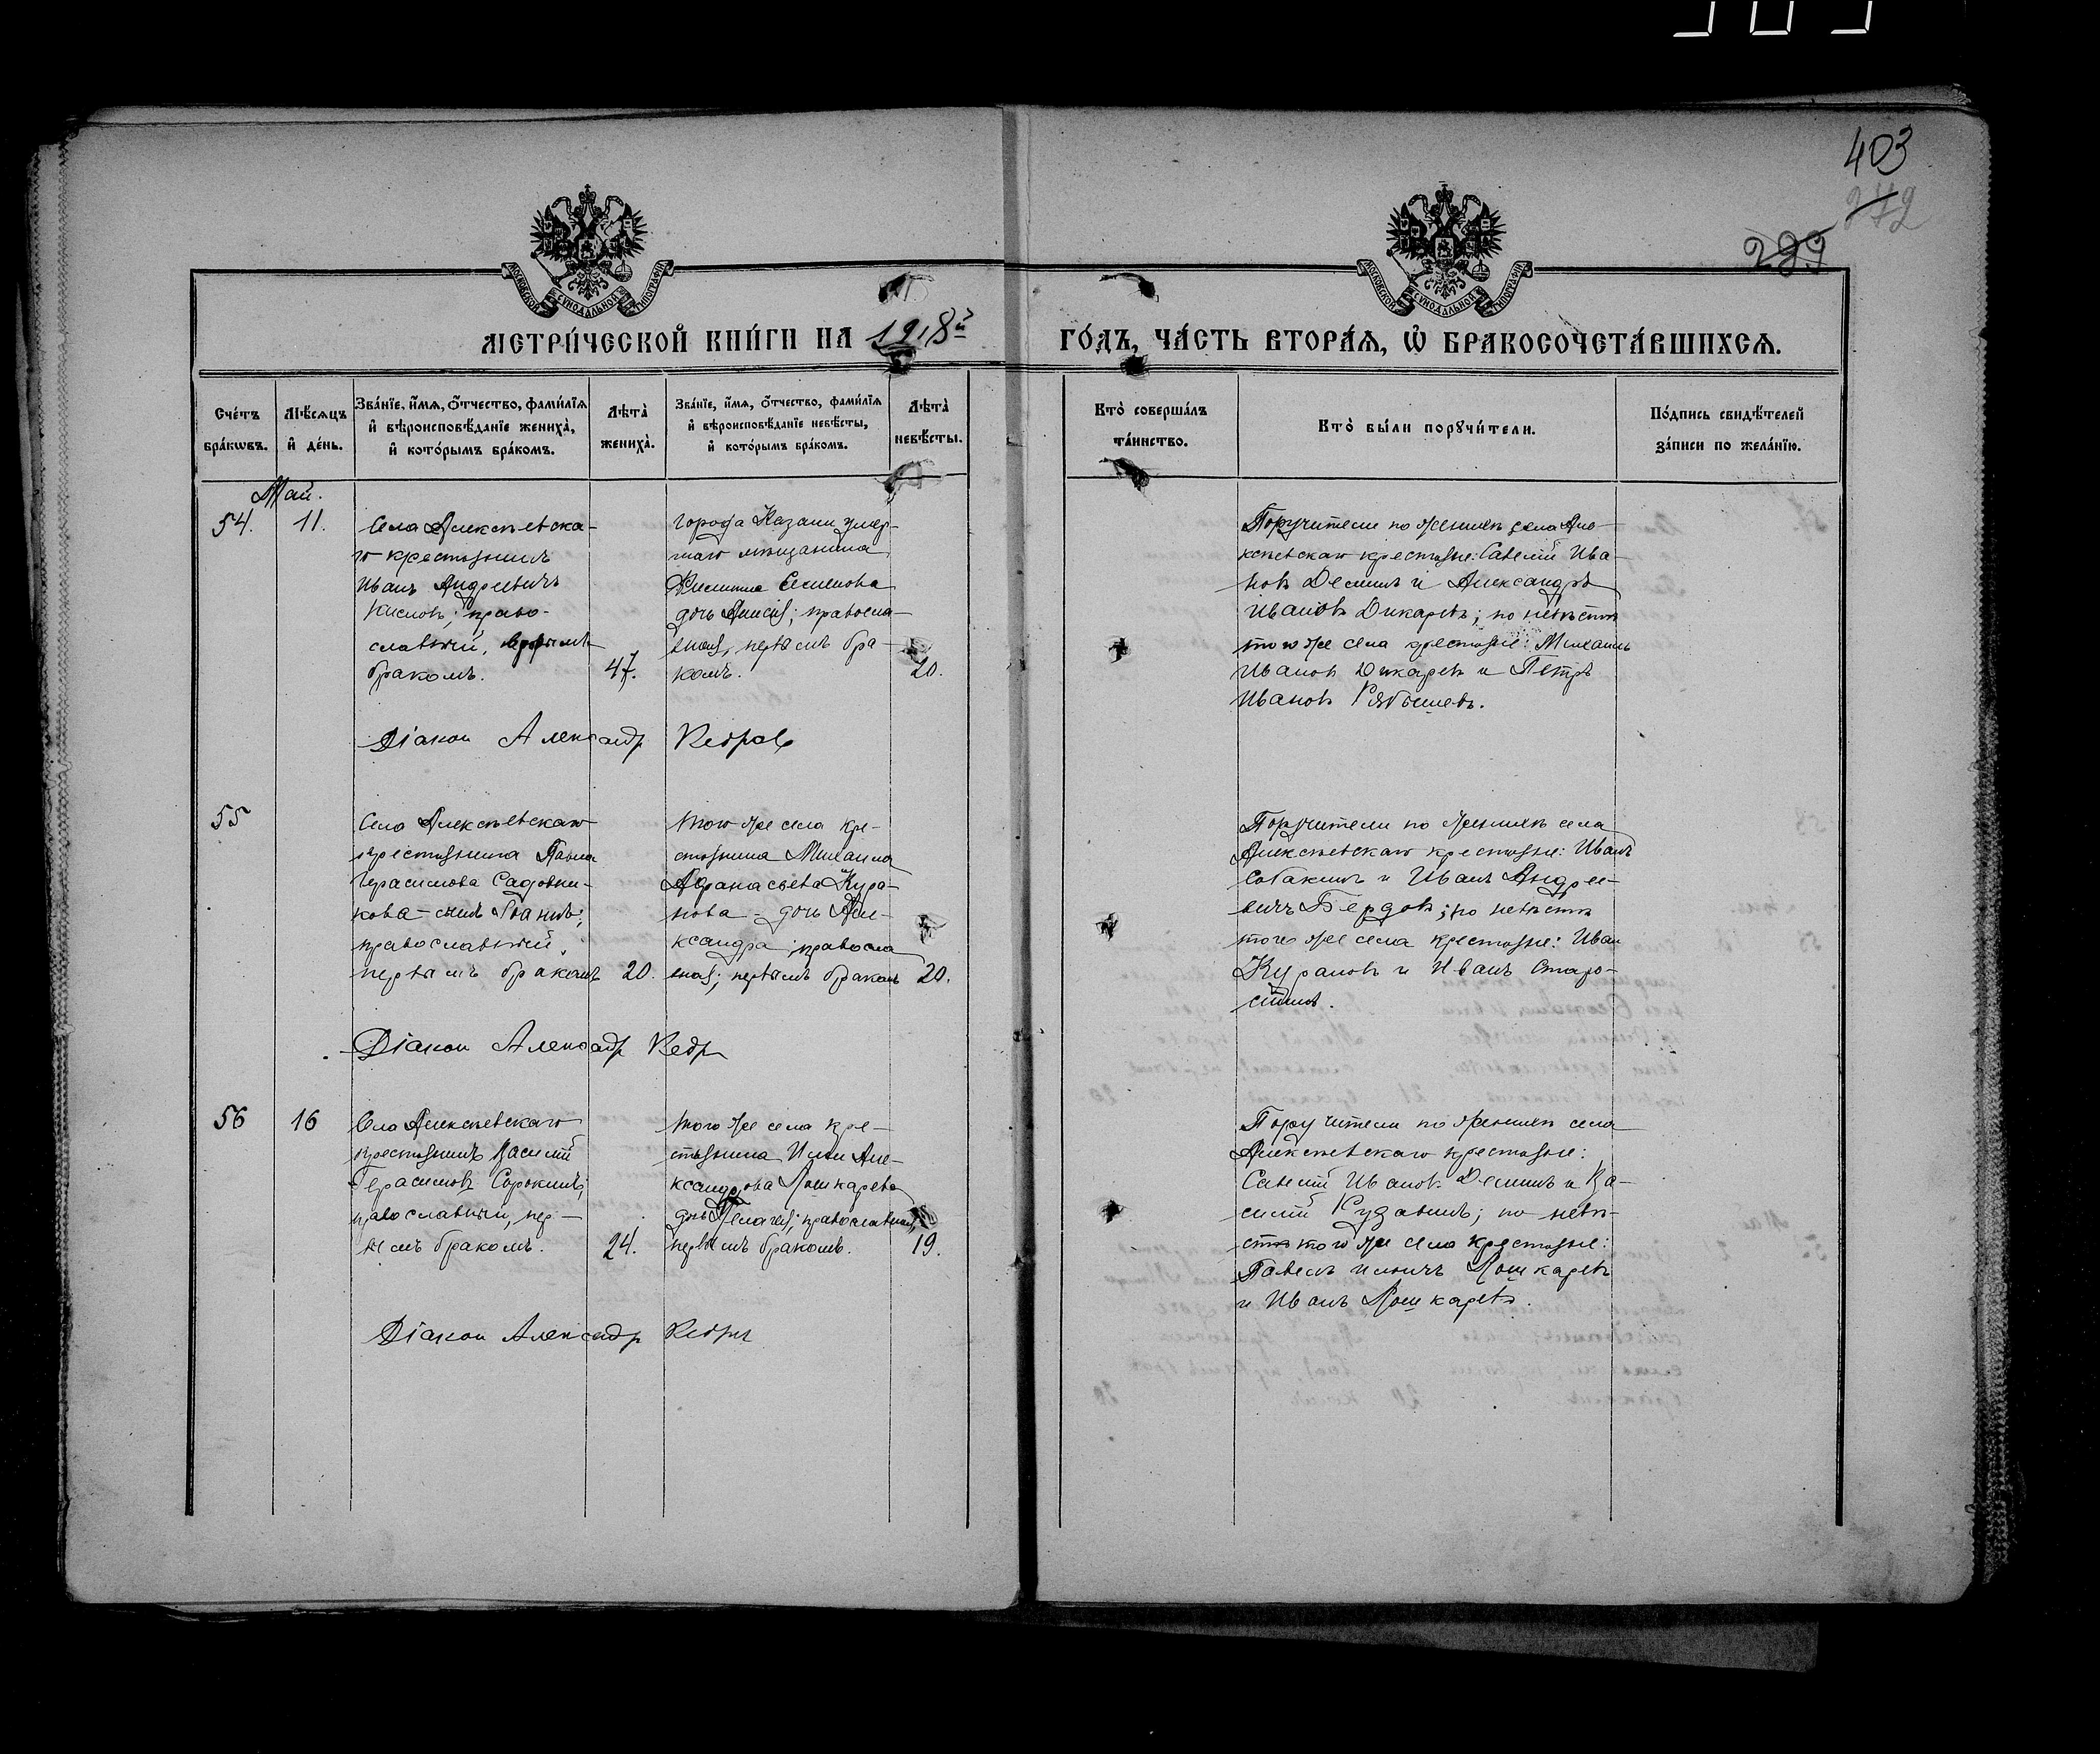 403
272
299
МОСКОВСКОЙ СѴНОДАЛЬНОЙ ТИПОГРАФІИ
МОСКОВСКОЙ СѴНОДАЛЬНОЙ ТИПОГРАФІИ
МЕТРИ́ЧЕСКОЙ КНИ́ГИ НА 1918й ГО́ДЪ, ЧА́СТЬ ВТОРА́Ѧ, Ѡ҆ БРАКОСОЧЕТА́ВШИХСѦ.
Сче́тъ бра́кѡвъ.
Мѣ́сѧцъ и҆ де́нь.
Зва́нїе, и҆́мѧ, ѻ҆́тчество, фами́лїѧ и҆ вѣроисповѣ́данїе жениха̀, и҆ кото́рымъ бра́комъ.
Лѣта̀ жениха̀.
Зва́нїе, и҆́мѧ, ѻ҆́тчество, фами́лїѧ и҆ вѣроисповѣ́данїе невѣ́сты, и҆ кото́рымъ бра́комъ.
Лѣта̀ невѣ́сты.
Кто̀ соверша́лъ та́инство.
Кто̀ бы́ли порꙋчи́тели.
По́дпись свидѣ́телей за́писи по жела́нїю.
Май.
54. 11.
Села Алексѣевска-
го крестьянинъ
Иванъ Андреевичъ
Кислов; право-
славный,
бракомъ. 47.
города Казани умер-
шаго мѣщанина
Филиппа Семенова
дочь Анисія; правосла-
вная, первымъ бра-
комъ. 20.
Поручители по женихѣ села Але-
ксѣевскаго крестьяне: Савелій Ива-
новъ Деминъ и Александръ
Ивановъ Дикаревъ; по невѣстѣ
того же села крестьяне: Михаилъ
Ивановъ Дикаревъ и Петръ
Ивановъ Рябышевъ.
Діакон Александр Кедров
55
Села Алексѣевскаго
крестьянина Павла
Герасимова Садовни-
кова - сынъ Іоаннъ;
православный,
первымъ бракомъ 20.
того же села кре-
стьянина Михаила
Афанасьева Кура-
нова - дочь Але-
ксандра; правосла
вная; первымъ бракомъ 20.
Поручители по женихѣ села
Алексѣевскаго крестьяне: Иванъ
Собакинъ и Иванъ Андрее-
вичъ Бердовъ; по невѣстѣ
того же села крестьяне: Иван
Курановъ и Иванъ Старо-
стинъ.
Діакон Александр Кедр
56 16
Села Алексѣевскаго
крестьянинъ Василій
Герасимовъ Сорокинъ;
православный, пер-
вымъ бракомъ. 24.
того же села кре-
стьянина Ильи Але-
ксандрова Лошкарева
дочь Пелагея; православная,
первымъ бракомъ. 19.
Поручители по женихѣ села
Алексѣевскаго крестьяне:
Савелій Ивановъ Деминъ и Ва-
силій Кудавинъ; по невѣ-
стѣ того же села крестьяне:
Павелъ Ильичъ Лошкаревъ
и Иванъ Лошкаревъ.
Діакон Александр Кедров